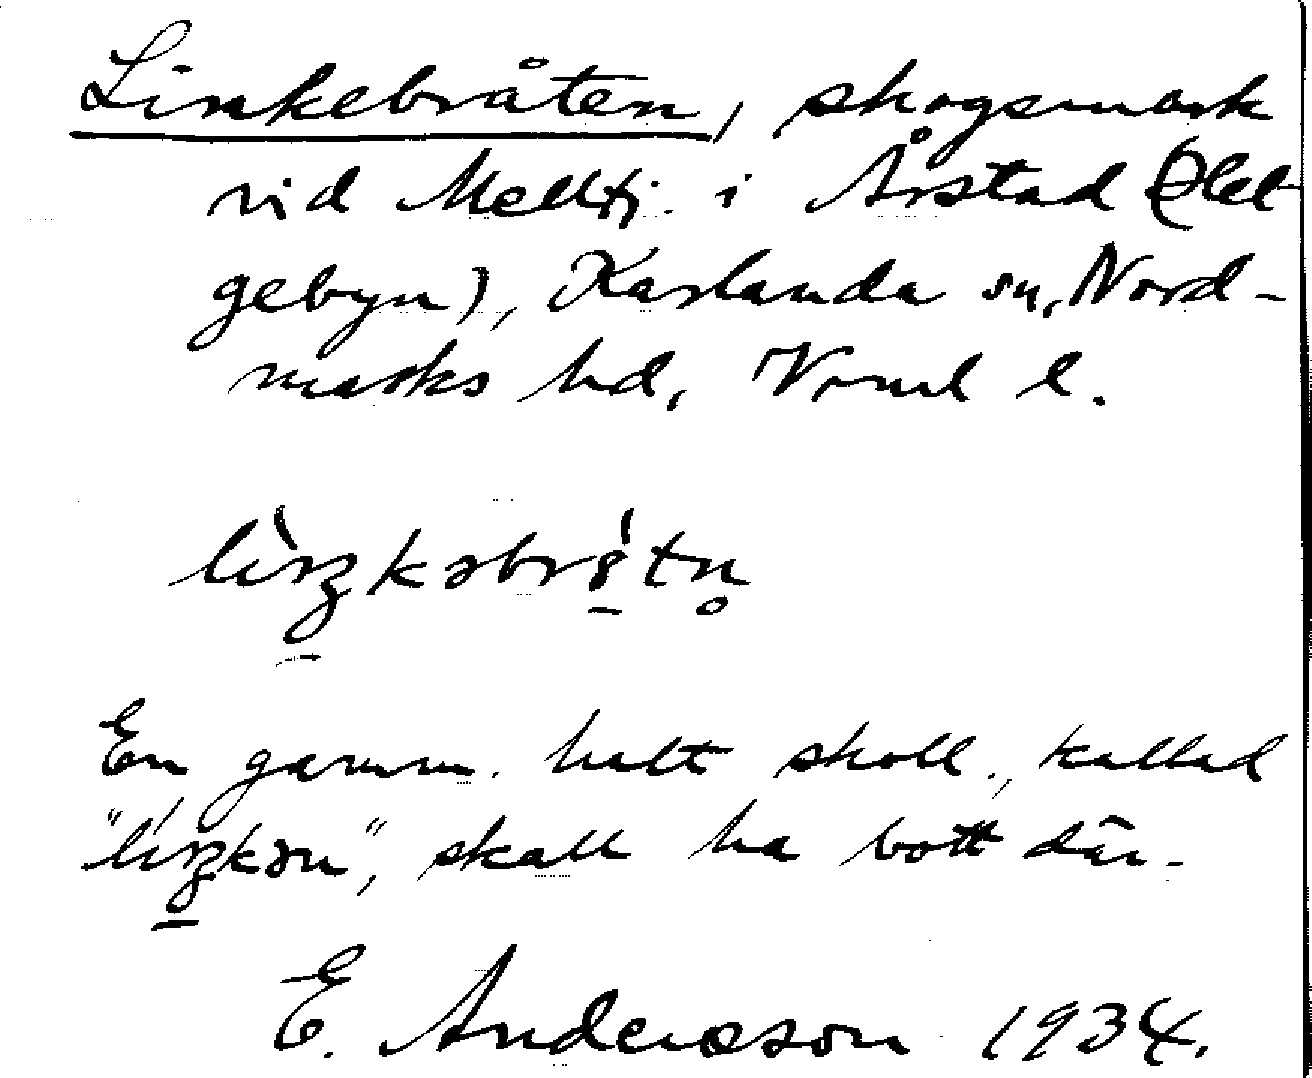 Linkebråten, skogsmark
vid Melltj. i Årstad (Olel-
gebyn), Karlanda sn, Nord-
marks hd, Vrml l.
En gamm. halt skoll., kallad
skall ha bott där.
E. Andersson 1934.